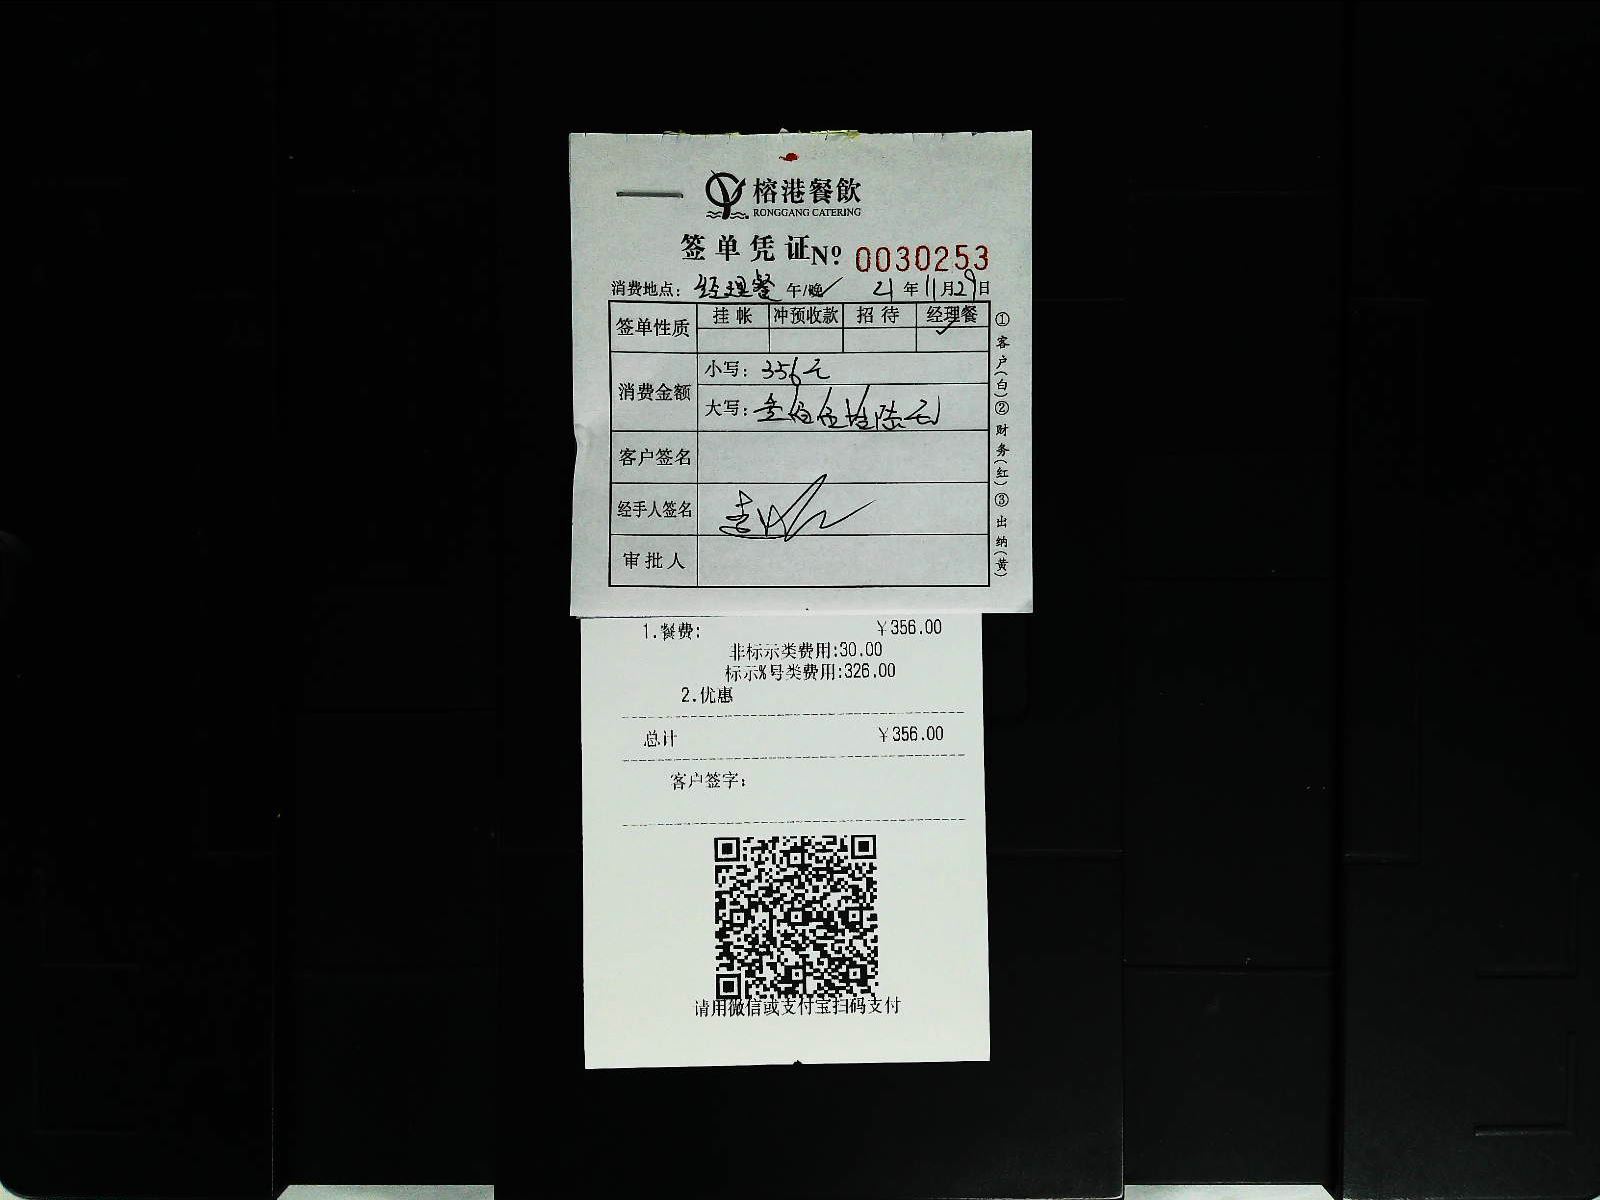 榕港餐飲
RONGGANG CATERING
签单凭证 Nº 0030253
消费地点：经理餐 午/晚✓ 21年11月29日
签单性质 挂帐 冲预收款 招待 经理餐
✓
消费金额 小写：356元
大写：叁佰伍拾陆元
客户签名
经手人签名
审批人
①客户(白)②财务(红)③出纳(黄)
1.餐费: ￥356.00
非标示类费用:30.00
标示%号类费用:326.00
2.优惠
总计 ￥356.00
客户签字:
请用微信或支付宝扫码支付